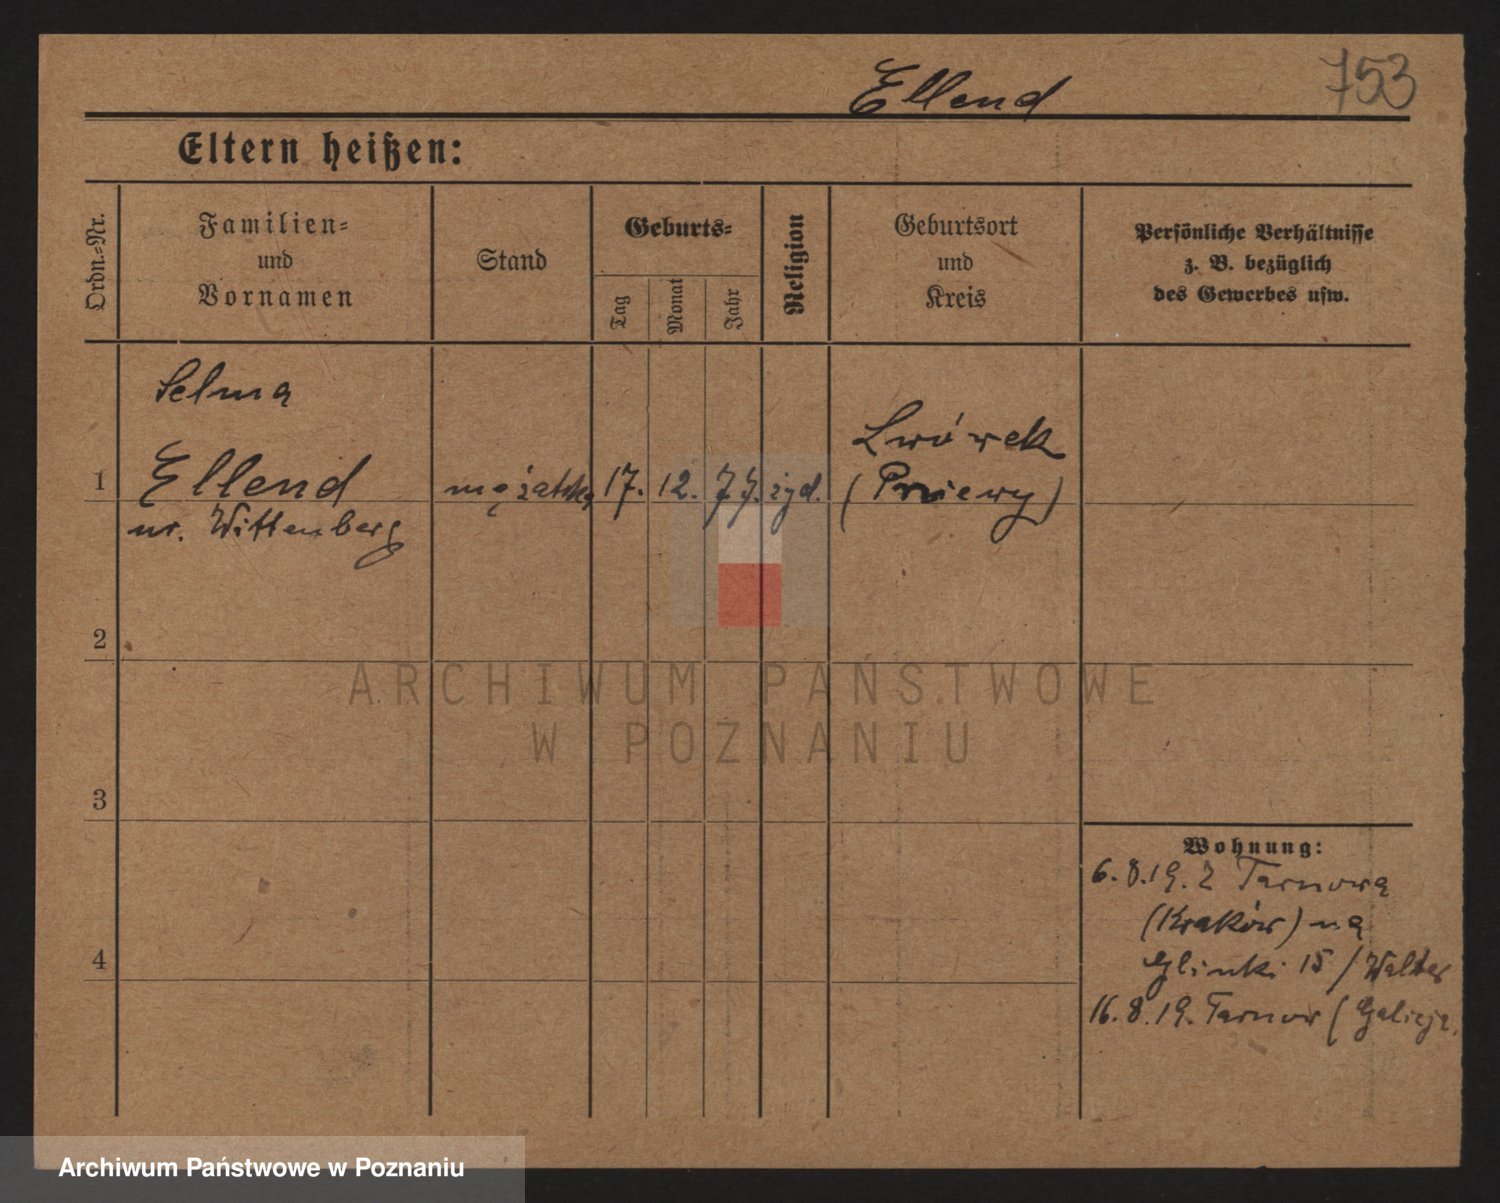 Ellend
753
Eltern heißen:
Ordn.-Nr.
Familien-
und
Vornamen
Stand
Geburts-
Tag
Monat
Jahr
Religion
Geburtsort
und
Kreis
Persönliche Verhältnisse
z. B. bezüglich
des Gewerbes usw.
Selma
1 Ellend mężatka 17. 12. 77. żyd.
ur. Wittenberg
Lwówek
(Pniewy)
2
3
4
Wohnung:
6.8.19. Z Tarnowa
(Kraków) na
Glinki 15 / Walter
16.8.19. Tarnow (Galicja.
ARCHIWUM PAŃSTWOWE
W POZNANIU
Archiwum Państwowe w Poznaniu